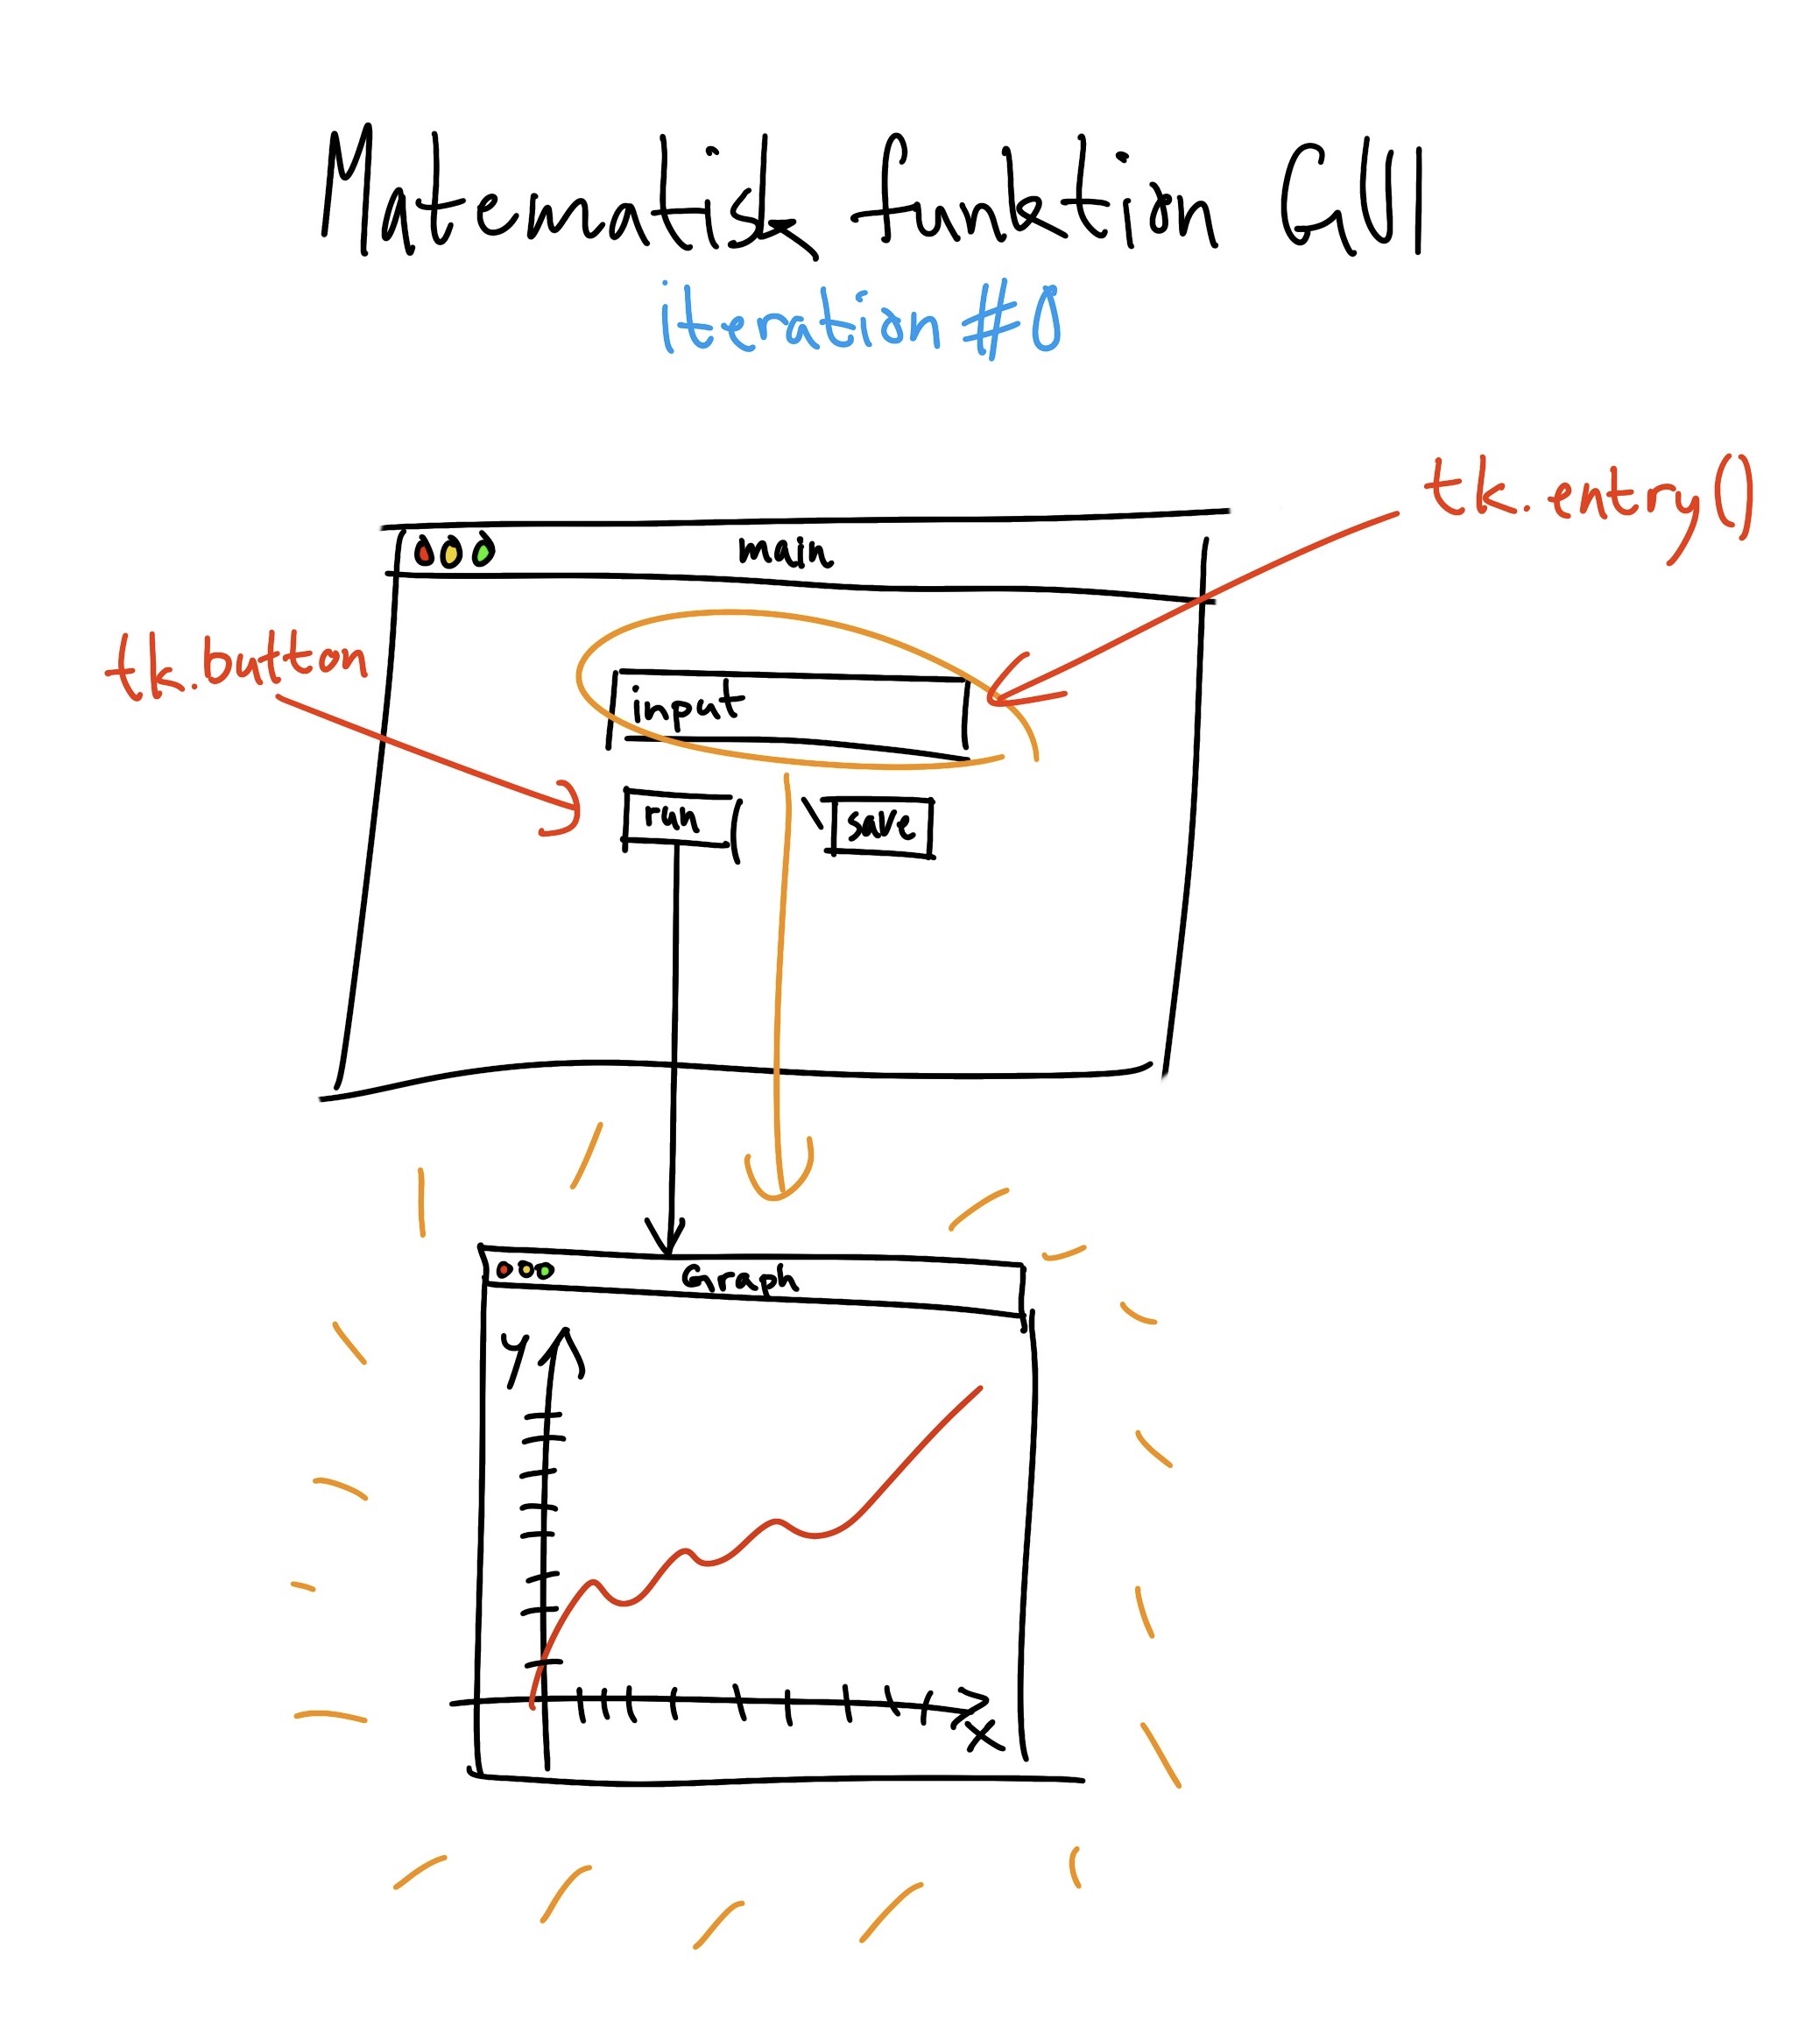 Matematisk funktion GUI
iteration #0
tk.entry()
main
tk.button
input
run
save
Graph
y
x